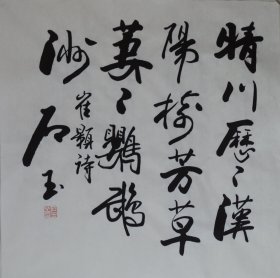 晴川歷々漢
陽樹芳草
萋々鸚鵡
洲
崔顥詩
石玉